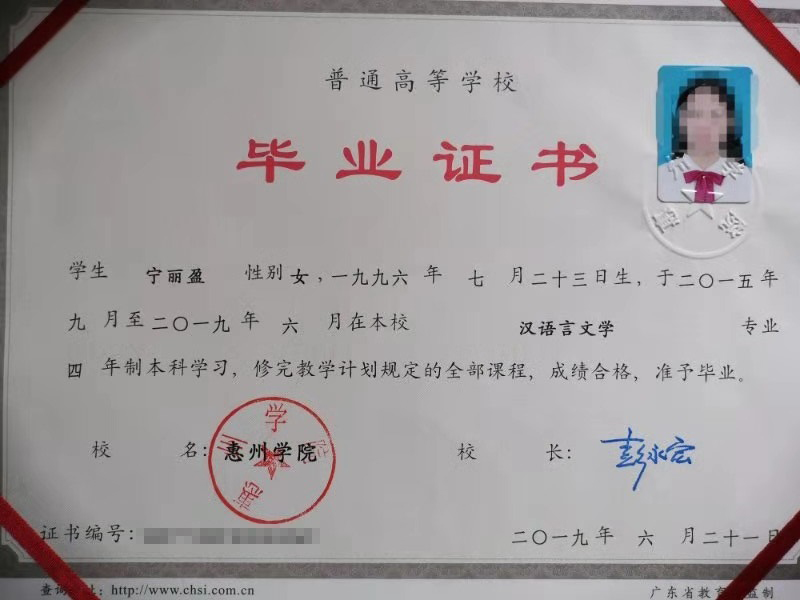 普通高等学校
毕业证书
学生 宁丽盈 性别女，一九九六年 七 月二十三日生，于二〇一五年
九 月至二〇一九年 六 月在本校 汉语言文学 专业
四 年制本科学习，修完教学计划规定的全部课程，成绩合格，准予毕业。
校 名：惠州学院 校 长：彭永宏
证书编号：
二〇一九年 六 月二十一日
http://www.chsi.com.cn 广东省教育 监制